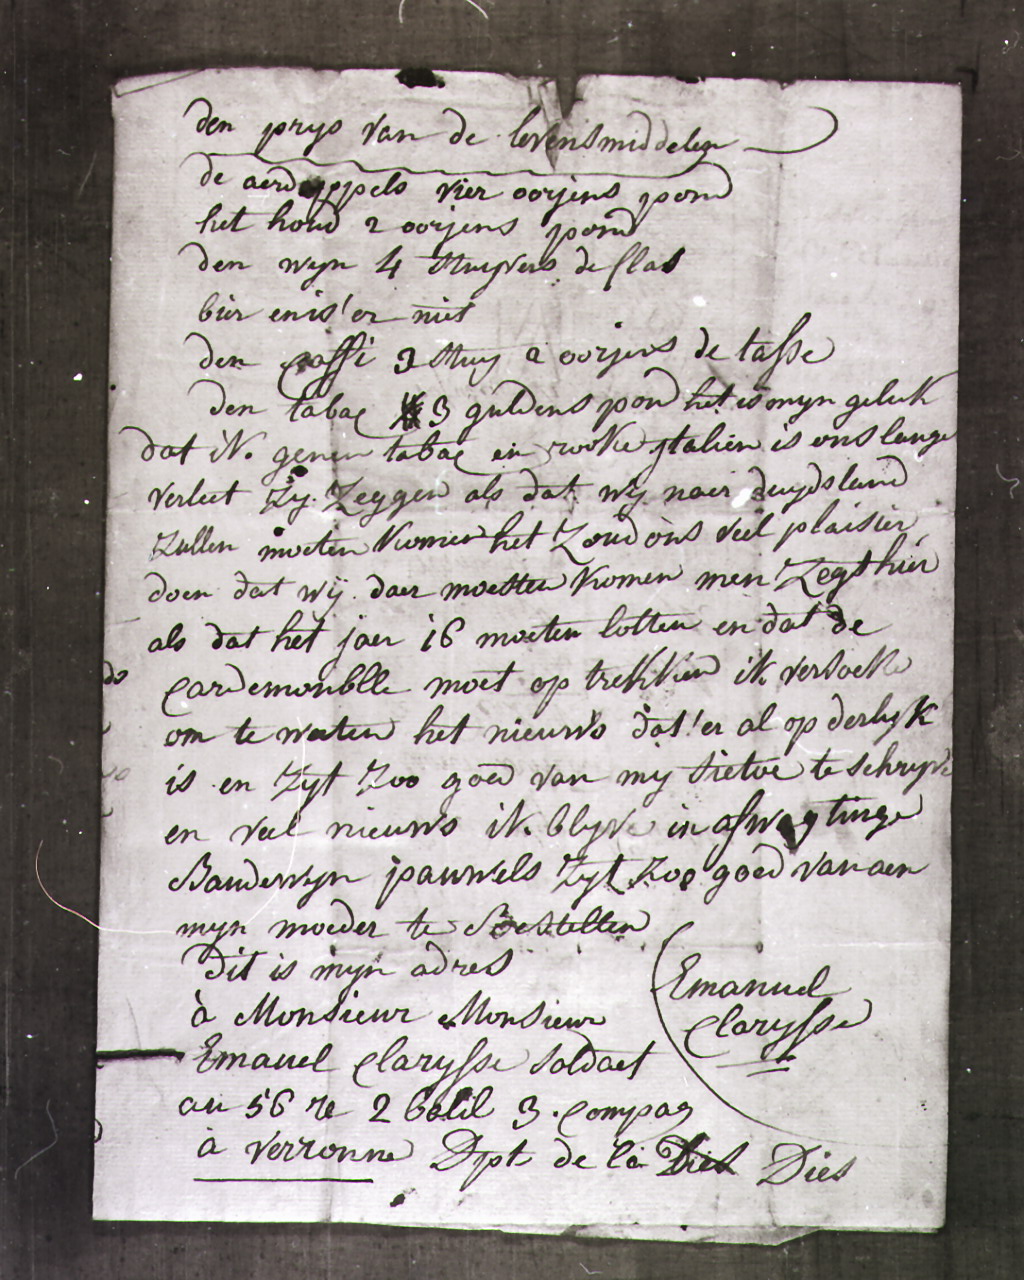 den prys van de levensmiddelen
de aerdappels vier oorjens pond
het houd 2 oorjens pond
den wyn 4 stuyvers de flas
bier enis'er niet
den caffi 3 stuy 2 oorjens de tasse
den tabac 3 guldens pond het is myn geluk
dat ik genen tabac en rooke jtalien is ons lange
verleet zy zeggen als dat wy naer duydsland
zullen moeten komen het zoud ons veel plaisier
doen dat wij daer moesten komen men zegt hier
als dat het jaer 16 moeten lotten en dat de
gardemonblle moet op trekken ik versoeke
om te weeten het nieuws dat'er al op derlyk
is en zyt zoo goed van my sietoe te schryve
en veel nieuws ik blyve in afwagtinge
Baudewyn pauwels zyt zoo goed van aen
myn moeder te Bestellen
Dit is myn adres
Emanuel
Clarysse
à Monsieur Monsieur
Emanuel Clarysse soldaet
au 56 re 2 batil 3. compag
à verronne Dpt de la Dies